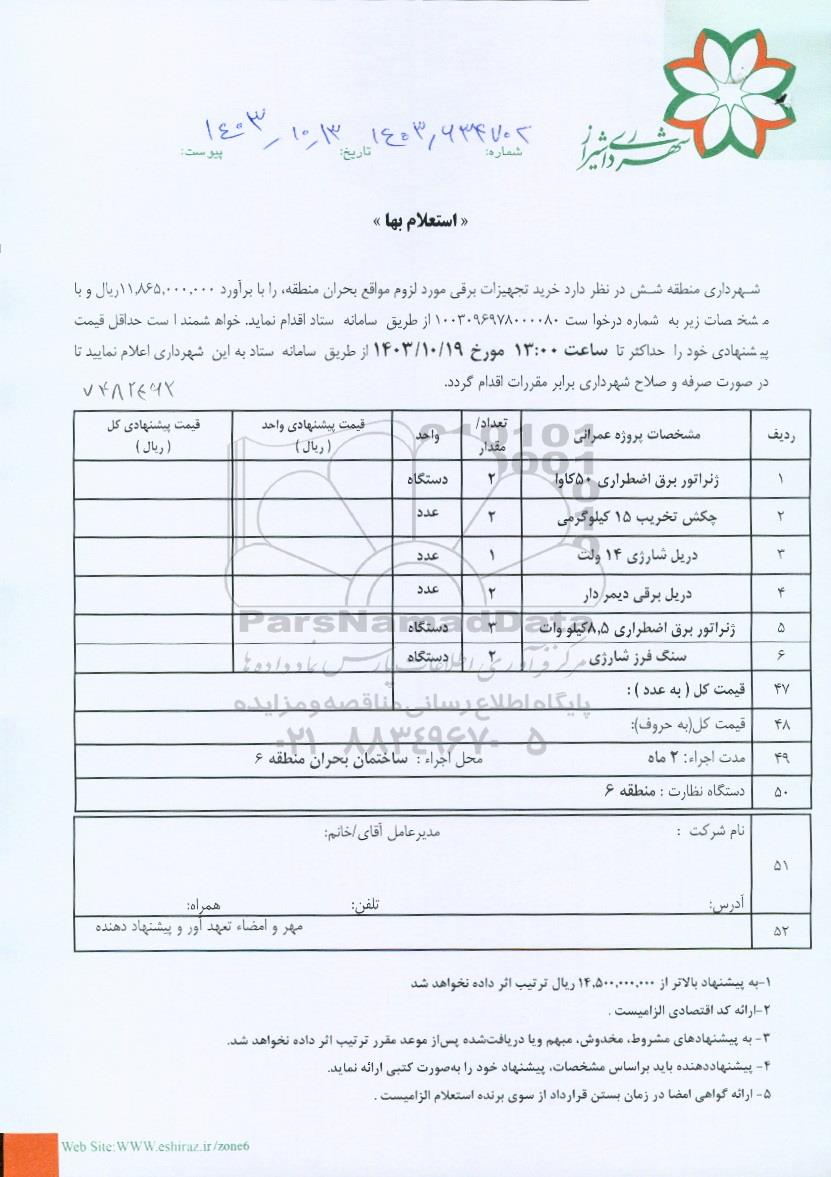 شهرداری شیراز
شماره: ۱۴۰۳٫۶۳۴۷۰۲ تاریخ: ۱۴۰۳٫۱۰٫۱۳ پیوست:
« استعلام بها »
شهرداری منطقه شش در نظر دارد خرید تجهیزات برقی مورد لزوم مواقع بحران منطقه، را با برآورد ۱۱,۸۶۵,۰۰۰,۰۰۰ریال و با
مشخصات زیر به شماره درخواست ۱۰۰۳۰۹۶۹۷۸۰۰۰۰۸۰ از طریق سامانه ستاد اقدام نماید. خواهشمند است حداقل قیمت
پیشنهادی خود را حداکثر تا ساعت ۱۳:۰۰ مورخ ۱۴۰۳/۱۰/۱۹ از طریق سامانه ستاد به این شهرداری اعلام نمایید تا
در صورت صرفه و صلاح شهرداری برابر مقررات اقدام گردد.
ردیف مشخصات پروژه عمرانی تعداد/مقدار واحد قیمت پیشنهادی واحد (ریال) قیمت پیشنهادی کل (ریال)
۱ ژنراتور برق اضطراری ۵۰کاوا ۲ دستگاه
۲ چکش تخریب ۱۵ کیلوگرمی ۲ عدد
۳ دریل شارژی ۱۴ ولت ۱ عدد
۴ دریل برقی دیمر دار ۲ عدد
۵ ژنراتور برق اضطراری ۸,۵کیلو وات ۳ دستگاه
۶ سنگ فرز شارژی ۲ دستگاه
۴۷ قیمت کل ( به عدد ) :
۴۸ قیمت کل(به حروف):
۴۹ مدت اجراء: ۲ ماه محل اجراء : ساختمان بحران منطقه ۶
۵۰ دستگاه نظارت : منطقه ۶
۵۱ نام شرکت : مدیرعامل آقای/خانم:
آدرس: تلفن: همراه:
۵۲ مهر و امضاء تعهد آور و پیشنهاد دهنده
ParsNamadData
مرکز فرآوری اطلاعات پارس نماد داده ها
پایگاه اطلاع رسانی مناقصه و مزایده
۰۲۱ ۸۸۳۴۹۶۷۰ ۵
۱-به پیشنهاد بالاتر از ۱۴,۵۰۰,۰۰۰,۰۰۰ ریال ترتیب اثر داده نخواهد شد
۲-ارائه کد اقتصادی الزامیست .
۳- به پیشنهادهای مشروط، مخدوش، مبهم ویا دریافت‌شده پس‌از موعد مقرر ترتیب اثر داده نخواهد شد.
۴- پیشنهاددهنده باید براساس مشخصات، پیشنهاد خود را به‌صورت کتبی ارائه نماید.
۵- ارائه گواهی امضا در زمان بستن قرارداد از سوی برنده استعلام الزامیست .
Web Site:WWW.eshiraz.ir/zone6